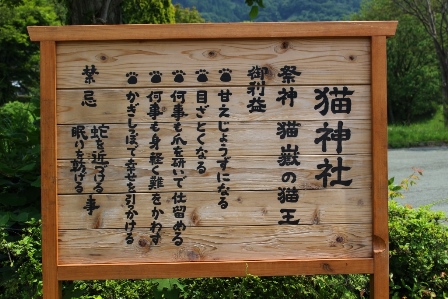 猫神社
祭神 猫嶽の猫王
御利益
甘えじょうずになる
目ざとくなる
何事も爪を研いで仕留める
何事も身軽く難をかわす
かぎしっぽで幸せを引かける
禁忌 蛇を近づける
眠りを妨げる 事